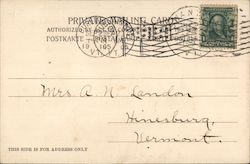 PRIVATE MAILING CARD
AUTHORIZED BY ACT OF CON
POSTKARTE
19 05
VT
Mrs. A. N. Landon
Hinesburg,
Vermont.
THIS SIDE IS FOR ADDRESS ONLY